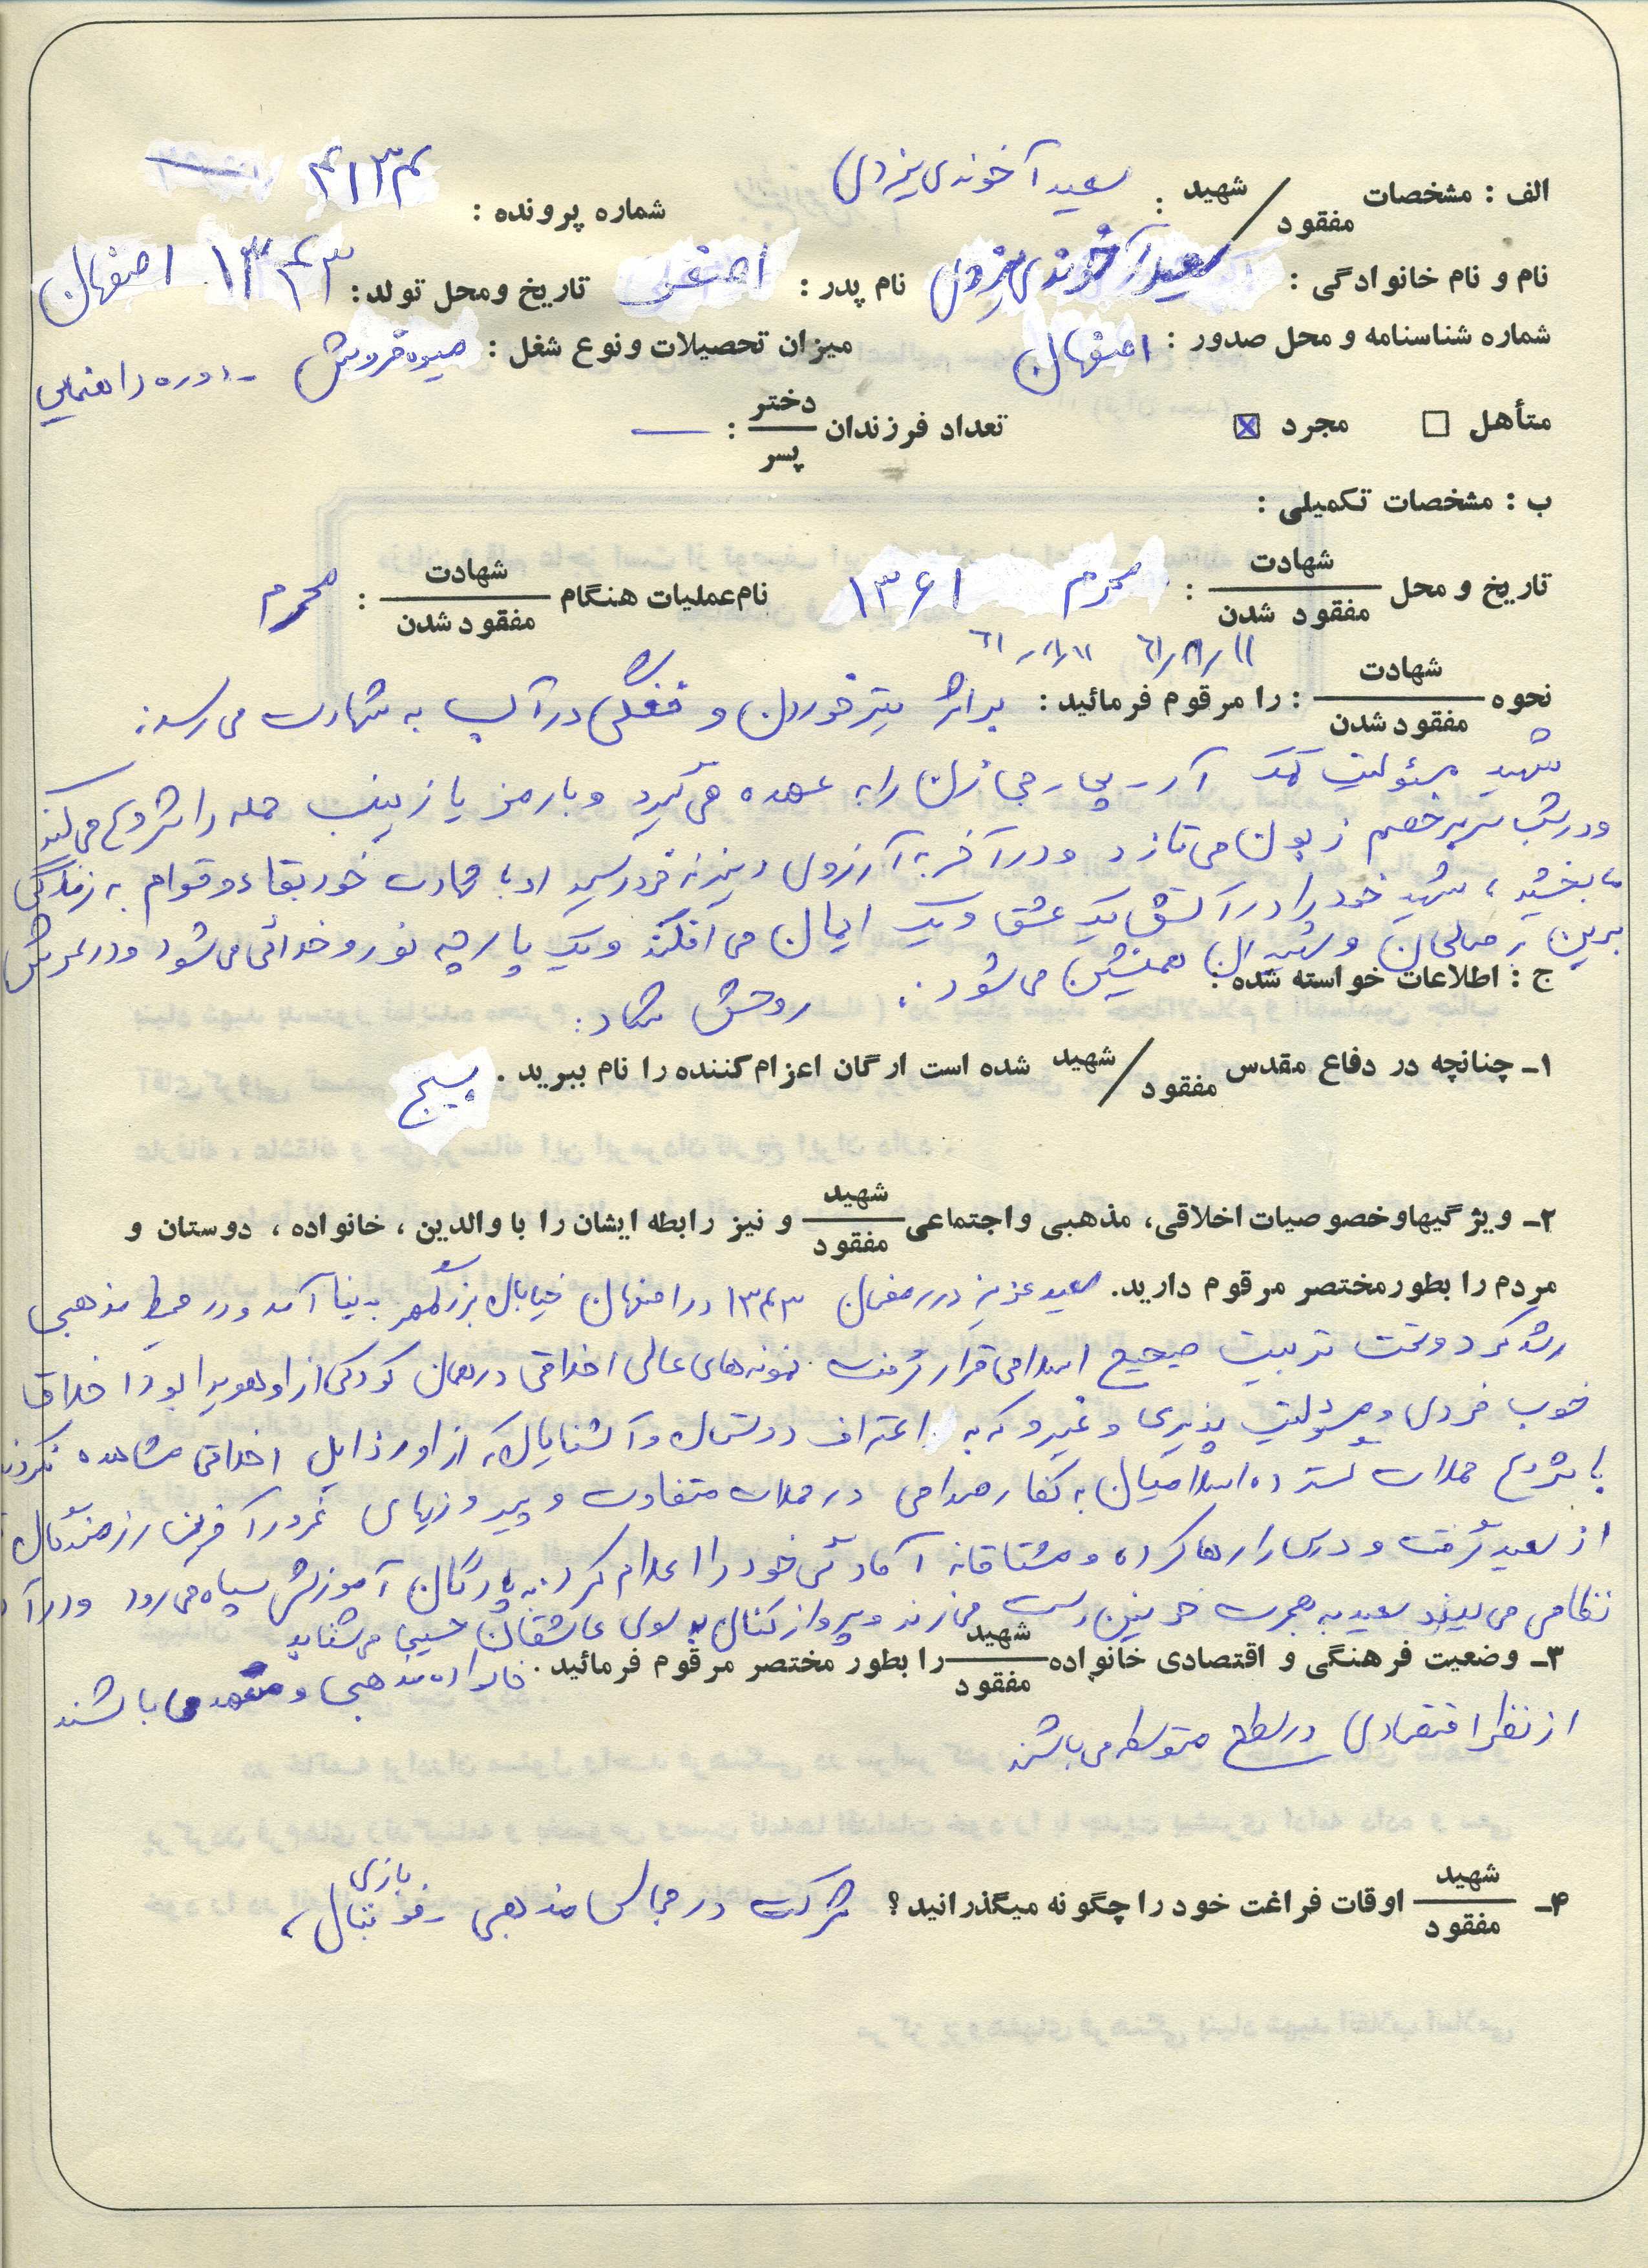 الف : مشخصات شهید / مفقود : سعید آخوندی یزدی شماره پرونده : ۴۱۳۴
نام و نام خانوادگی : سعید آخوندی یزدی نام پدر : اصغر تاریخ ومحل تولد: ۱۳۴۳ اصفهان
شماره شناسنامه و محل صدور : اصفهان میزان تحصیلات و نوع شغل : میوه فروش - دوره راهنمایی
متأهل ☐ مجرد ☒ تعداد فرزندان دختر / پسر : —
ب : مشخصات تکمیلی :
تاریخ و محل شهادت / مفقود شدن : محرم ۱۳۶۱ نام عملیات هنگام شهادت / مفقود شدن : محرم
۶۱/۸/۱۱
نحوه شهادت / مفقود شدن : را مرقوم فرمائید : براثر تیر خوردن و خفگی در آب به شهادت می رسد.
شهید مسئولیت کمک آر-پی-جی زن را به عهده می گیرد و با رمز یا زینب حمله را شروع می کند
ودرشب بر خصم زبون می تازد ودر آخر به آرزوی دیرینه خود رسید او با شهادت خود بقاء و قوام به زندگی
بخشید ، شهید خود را در آتش یک عشق ویک ایمان می افکند ویک پارچه نور و خدائی می شود ودر عرش
برین با صالحان و شهیدان همنشین می شود. روحش شاد.
ج : اطلاعات خواسته شده :
۱ـ چنانچه در دفاع مقدس شهید / مفقود شده است ارگان اعزام کننده را نام ببرید . بسیج
۲ـ ویژگیها و خصوصیات اخلاقی، مذهبی و اجتماعی شهید / مفقود و نیز رابطه ایشان را با والدین ، خانواده ، دوستان و
مردم را بطور مختصر مرقوم دارید. سعید عزیز در رمضان ۱۳۴۳ در اصفهان خیابان بزرگمهر به دنیا آمد ودر محیط مذهبی
رشد کرد و تحت تربیت صحیح اسلامی قرار گرفت. نمونه های عالی اخلاقی در همان کودکی از او هویدا بود اخلاق
خوب فردی و مسئولیت پذیری و غیره که به اعتراف دوستان و آشنایان که از او رذایل اخلاقی مشاهده نکردند
با شروع حملات گسترده اسلامیان به کفار صدامی در حملات متفاوت و پیروزیهای غرور آفرین رزمندگان
از سعید گرفت و درس را رها کرده و مشتاقانه آمادگی خود را اعلام کرد. به پادگان آموزشی سپاه می رود ودر آن
نظامی می بیند سعید به هجرت خونین دست می زند و پرواز کنان به سوی عاشقان حسینی می شتابد
۳ـ وضعیت فرهنگی و اقتصادی خانواده شهید / مفقود را بطور مختصر مرقوم فرمائید . خانواده مذهبی و متعهد می باشند
از نظر اقتصادی در سطح متوسط می باشند
۴ـ شهید / مفقود اوقات فراغت خود را چگونه میگذرانید ؟ شرکت در مجالس مذهبی - بازی فوتبال ،